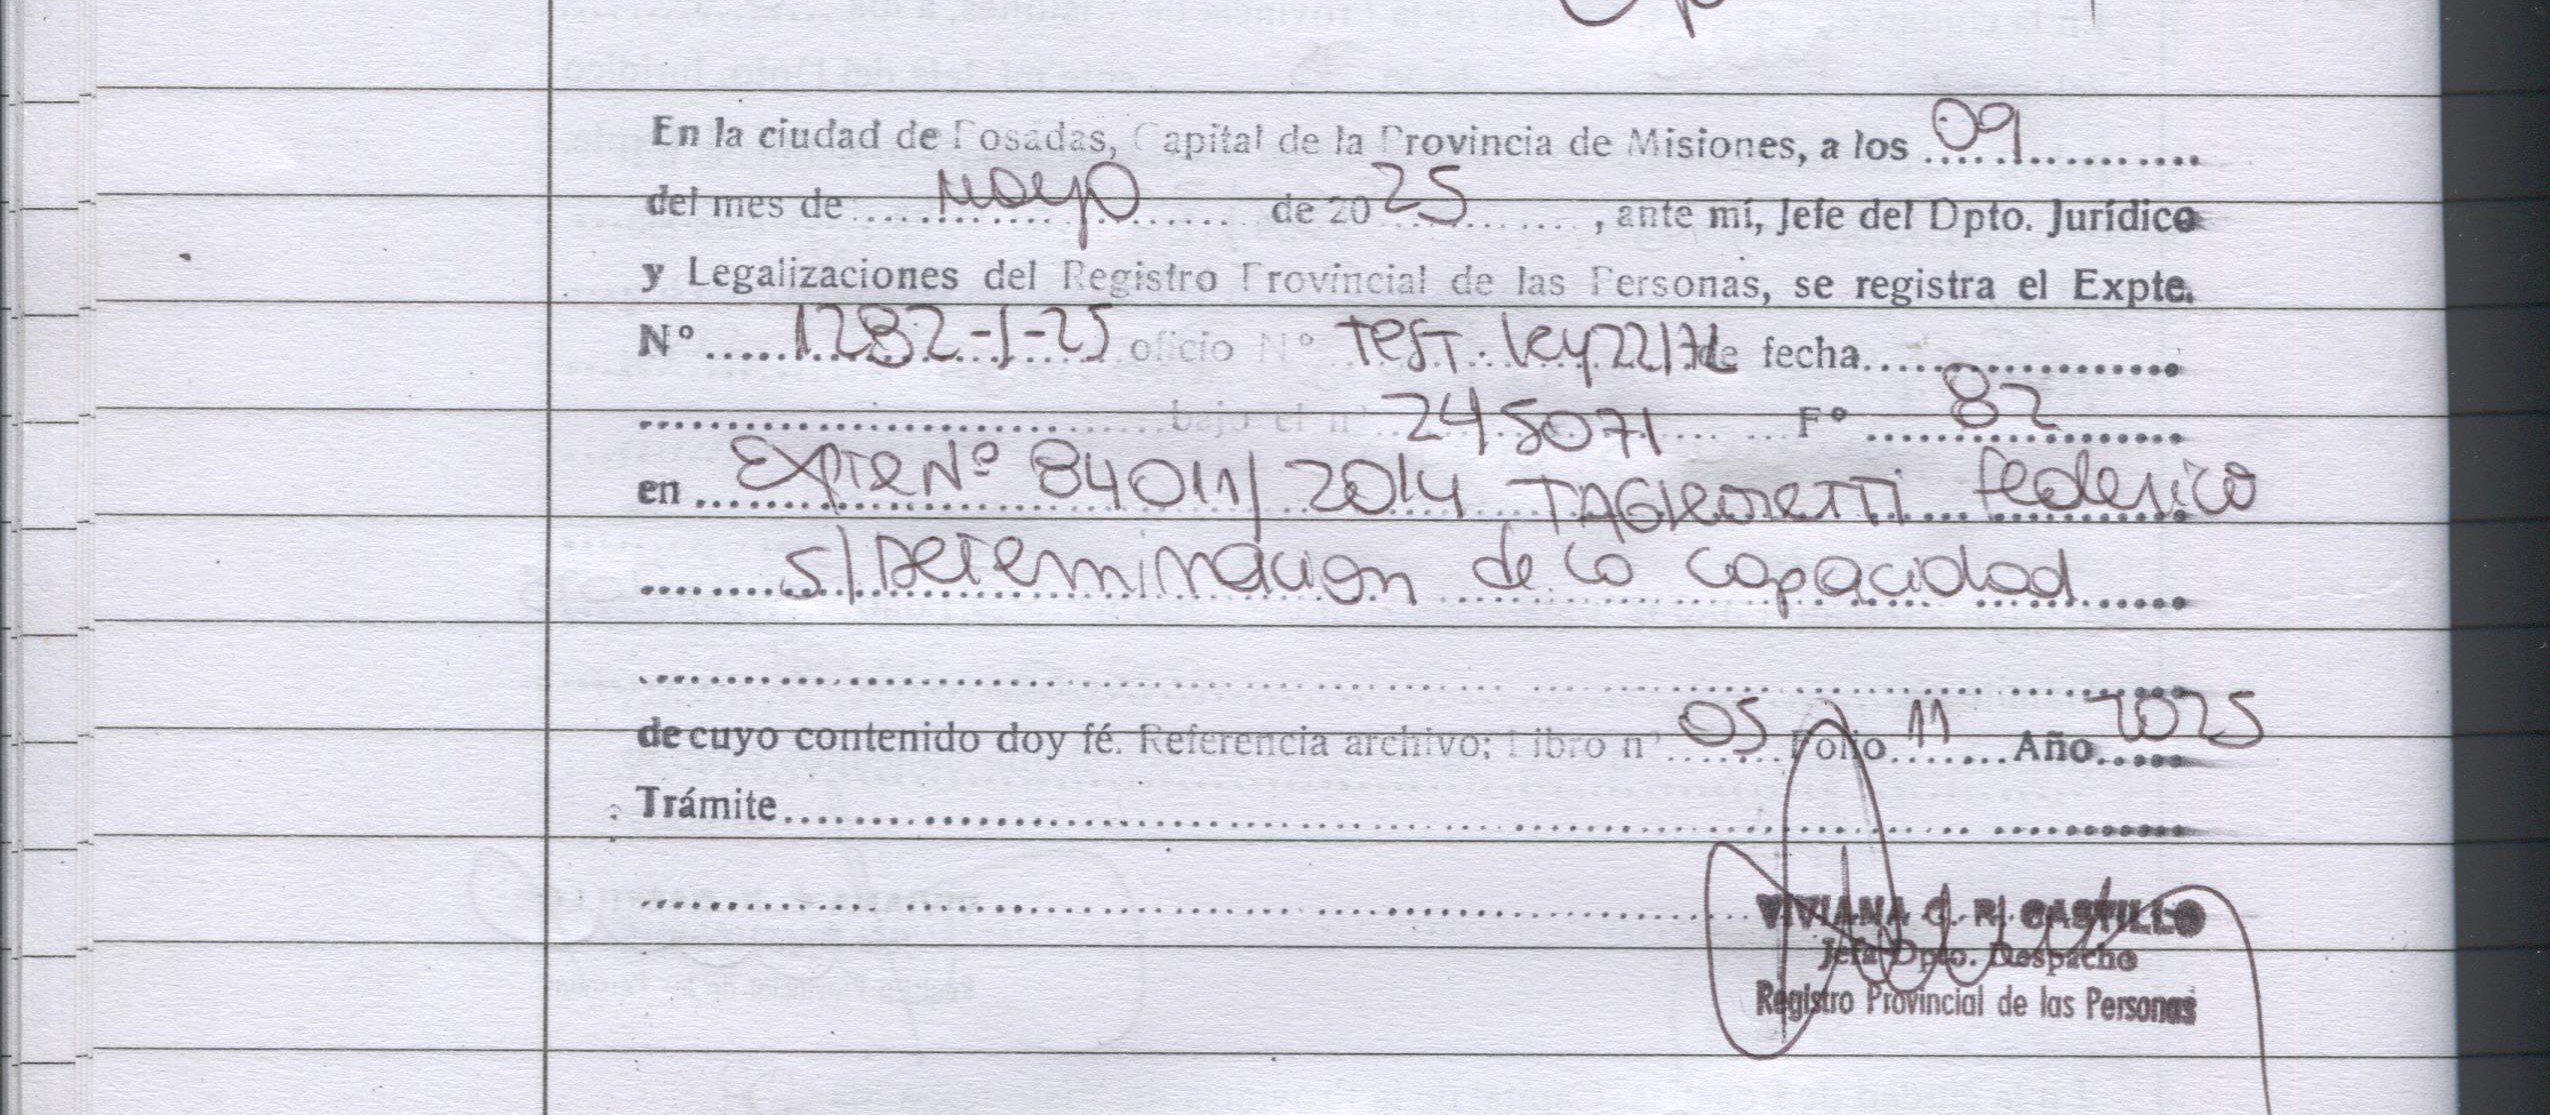 En la ciudad de Posadas, Capital de la Provincia de Misiones, a los 09
del mes de mayo de 2025, ante mí, Jefe del Dpto. Jurídico
y Legalizaciones del Registro Provincial de las Personas, se registra el Expte.
Nº 1282-1-25 oficio Nº Test. Ley 22172 de fecha
bajo el nº 245071 Fº 82
en Expte Nº 84011/2014 Federico
s/ Determinacion de la capacidad
de cuyo contenido doy fé. Referencia archivo; Libro nº 05 Folio 11 Año 2025
Trámite
VIVIANA C. R. CASTILLO
Jefa Dpto. Despacho
Registro Provincial de las Personas